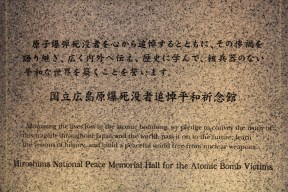 原子爆弾死没者を心から追悼するとともに、その惨禍を
語り継ぎ、広く内外へ伝え、歴史に学んで、核兵器のない
平和な世界を築くことを誓います。
国立広島原爆死没者追悼平和祈念館
Mourning the lives lost in the atomic bombing, we pledge to convey the truth of
this tragedy throughout Japan and the world, pass it on to the future, learn
the lessons of history, and build a peaceful world free from nuclear weapons.
Hiroshima National Peace Memorial Hall for the Atomic Bomb Victims